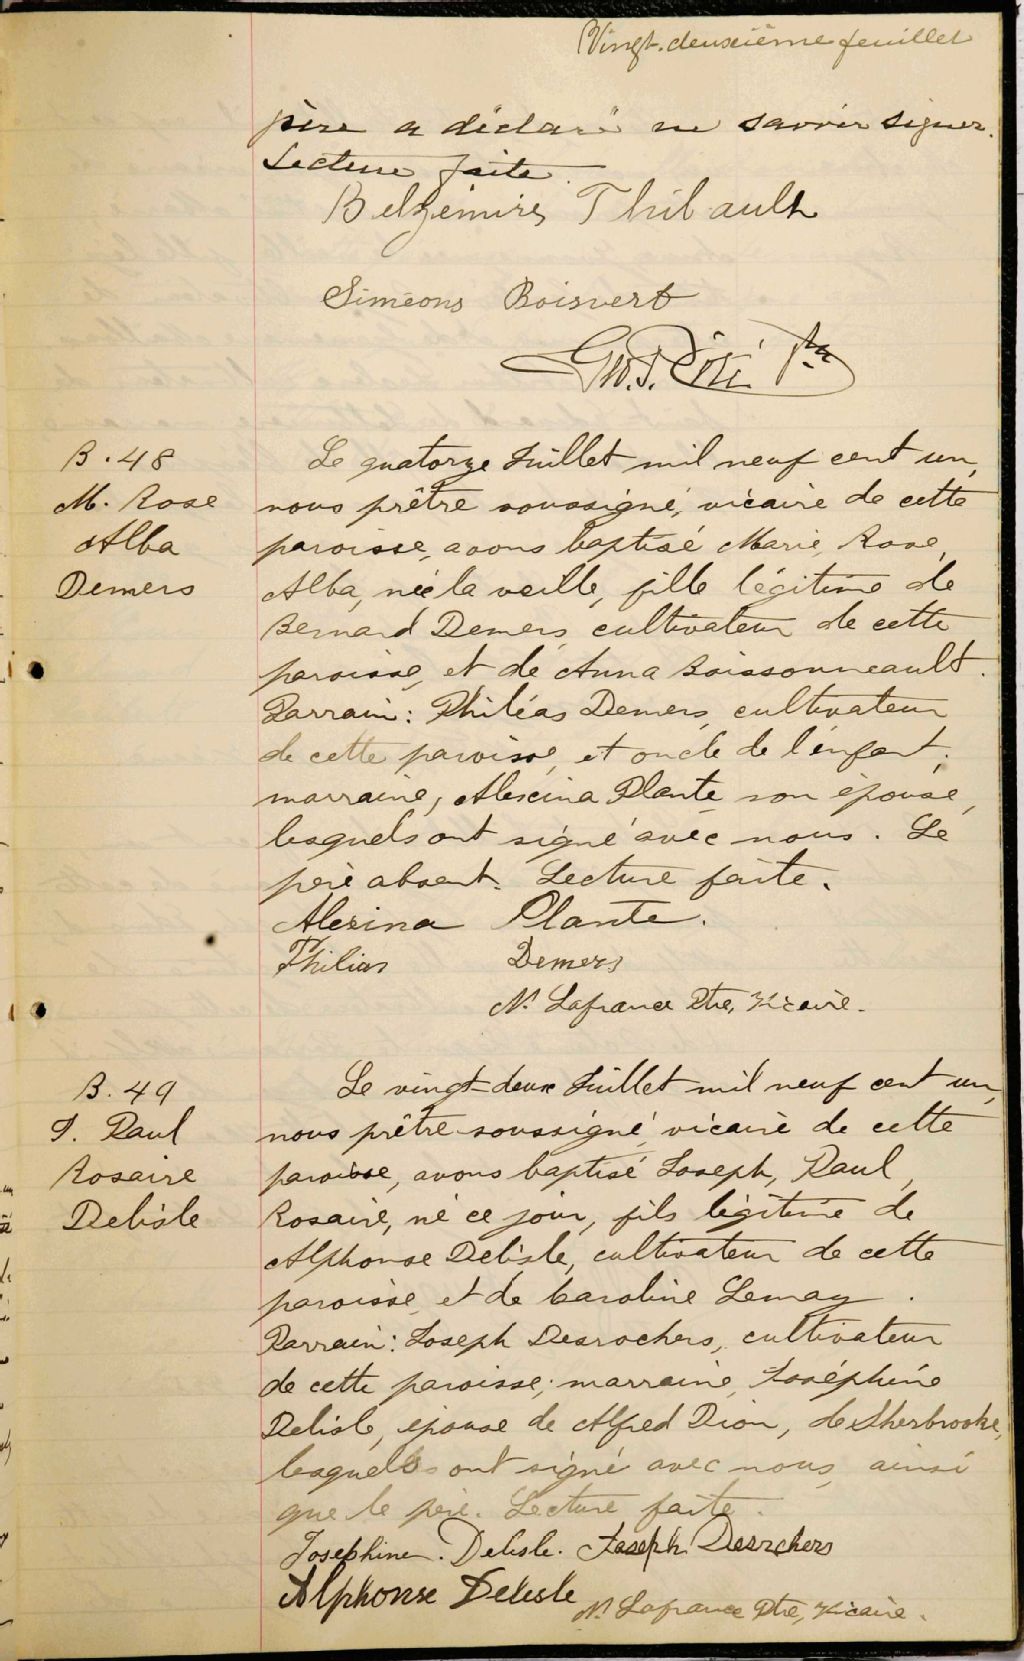 Vingt-deuxième feuillet
père a déclaré ne savoir signer.
Lecture faite.
Belzémire Thibault
Siméons Boisvert
Ptre
B. 48
M. Rose
Alba
Demers
Le quatorze Juillet mil neuf cent un,
nous prêtre soussigné, vicaire de cette
paroisse, avons baptisé Marie, Rose,
Alba, née la veille, fille légitime de
Bernard Demers, cultivateur de cette
paroisse, et de Anna Boissonneault.
Parrain: Philéas Demers, cultivateur
de cette paroisse, et oncle de l'enfant;
marraine, Alexina Plante son épouse,
lesquels ont signé avec nous. Le
père absent. Lecture faite.
Alexina Plante.
Philias Demers
N. Lafrance Ptre, Vicaire.
B. 49
J. Paul
Rosaire
Delisle
Le vingt-deux Juillet mil neuf cent un,
nous prêtre soussigné, vicaire de cette
paroisse, avons baptisé Joseph, Paul,
Rosaire, né ce jour, fils légitime de
Alphonse Delisle, cultivateur de cette
paroisse, et de Caroline Lemay.
Parrain: Joseph Desrochers, cultivateur
de cette paroisse; marraine, Joséphine
Delisle, épouse de Alfred Dion, de Sherbrooke,
lesquels ont signé avec nous, ainsi
que le père. Lecture faite.
Josephine. Delisle. Joseph Desrchers
Alphonse Delisle N. Lafrance Ptre, Vicaire.